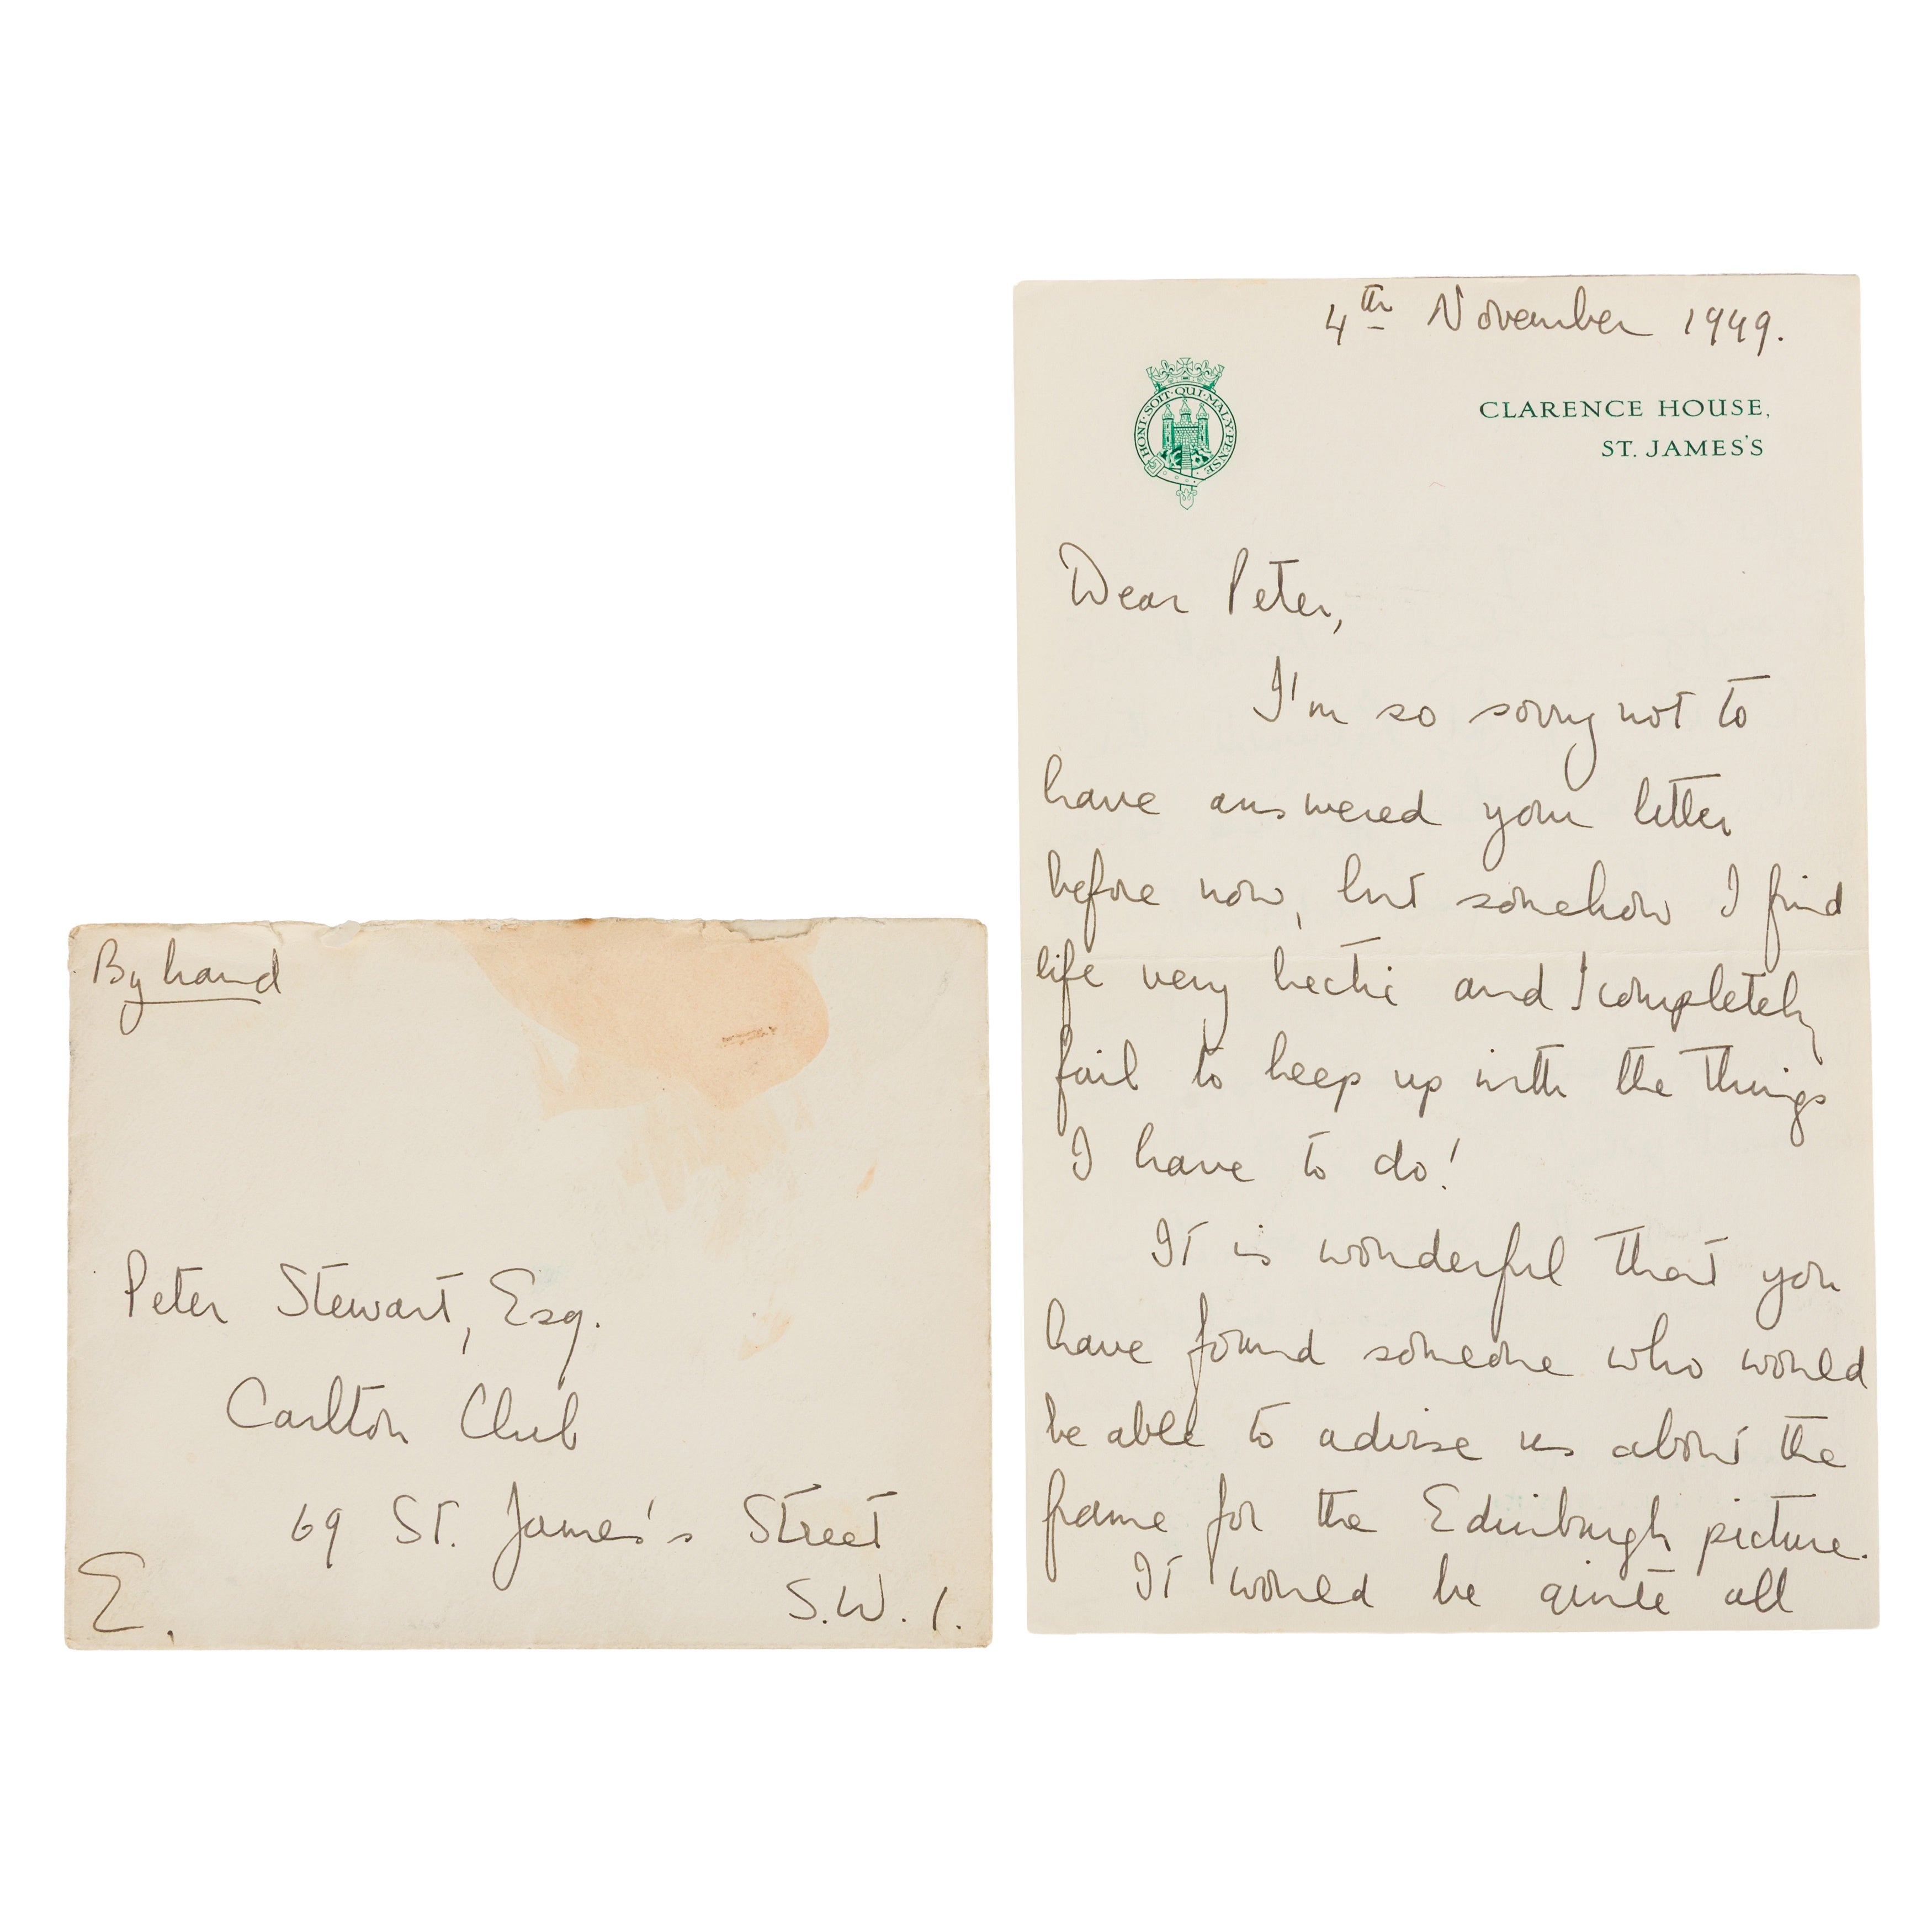 By hand
Peter Stewart, Esq.
Carlton Club
69 St. James's Street
S.W.1.
E.
4th November 1949.
HONI·SOIT·QUI·MAL·Y·PENSE
CLARENCE HOUSE,
ST. JAMES'S
Dear Peter,
I'm so sorry not to
have answered your letter
before now, but somehow I find
life very hectic and I completely
fail to keep up with the things
I have to do!
It is wonderful that you
have found someone who would
be able to advise us about the
frame for the Edinburgh picture.
It would be quite all